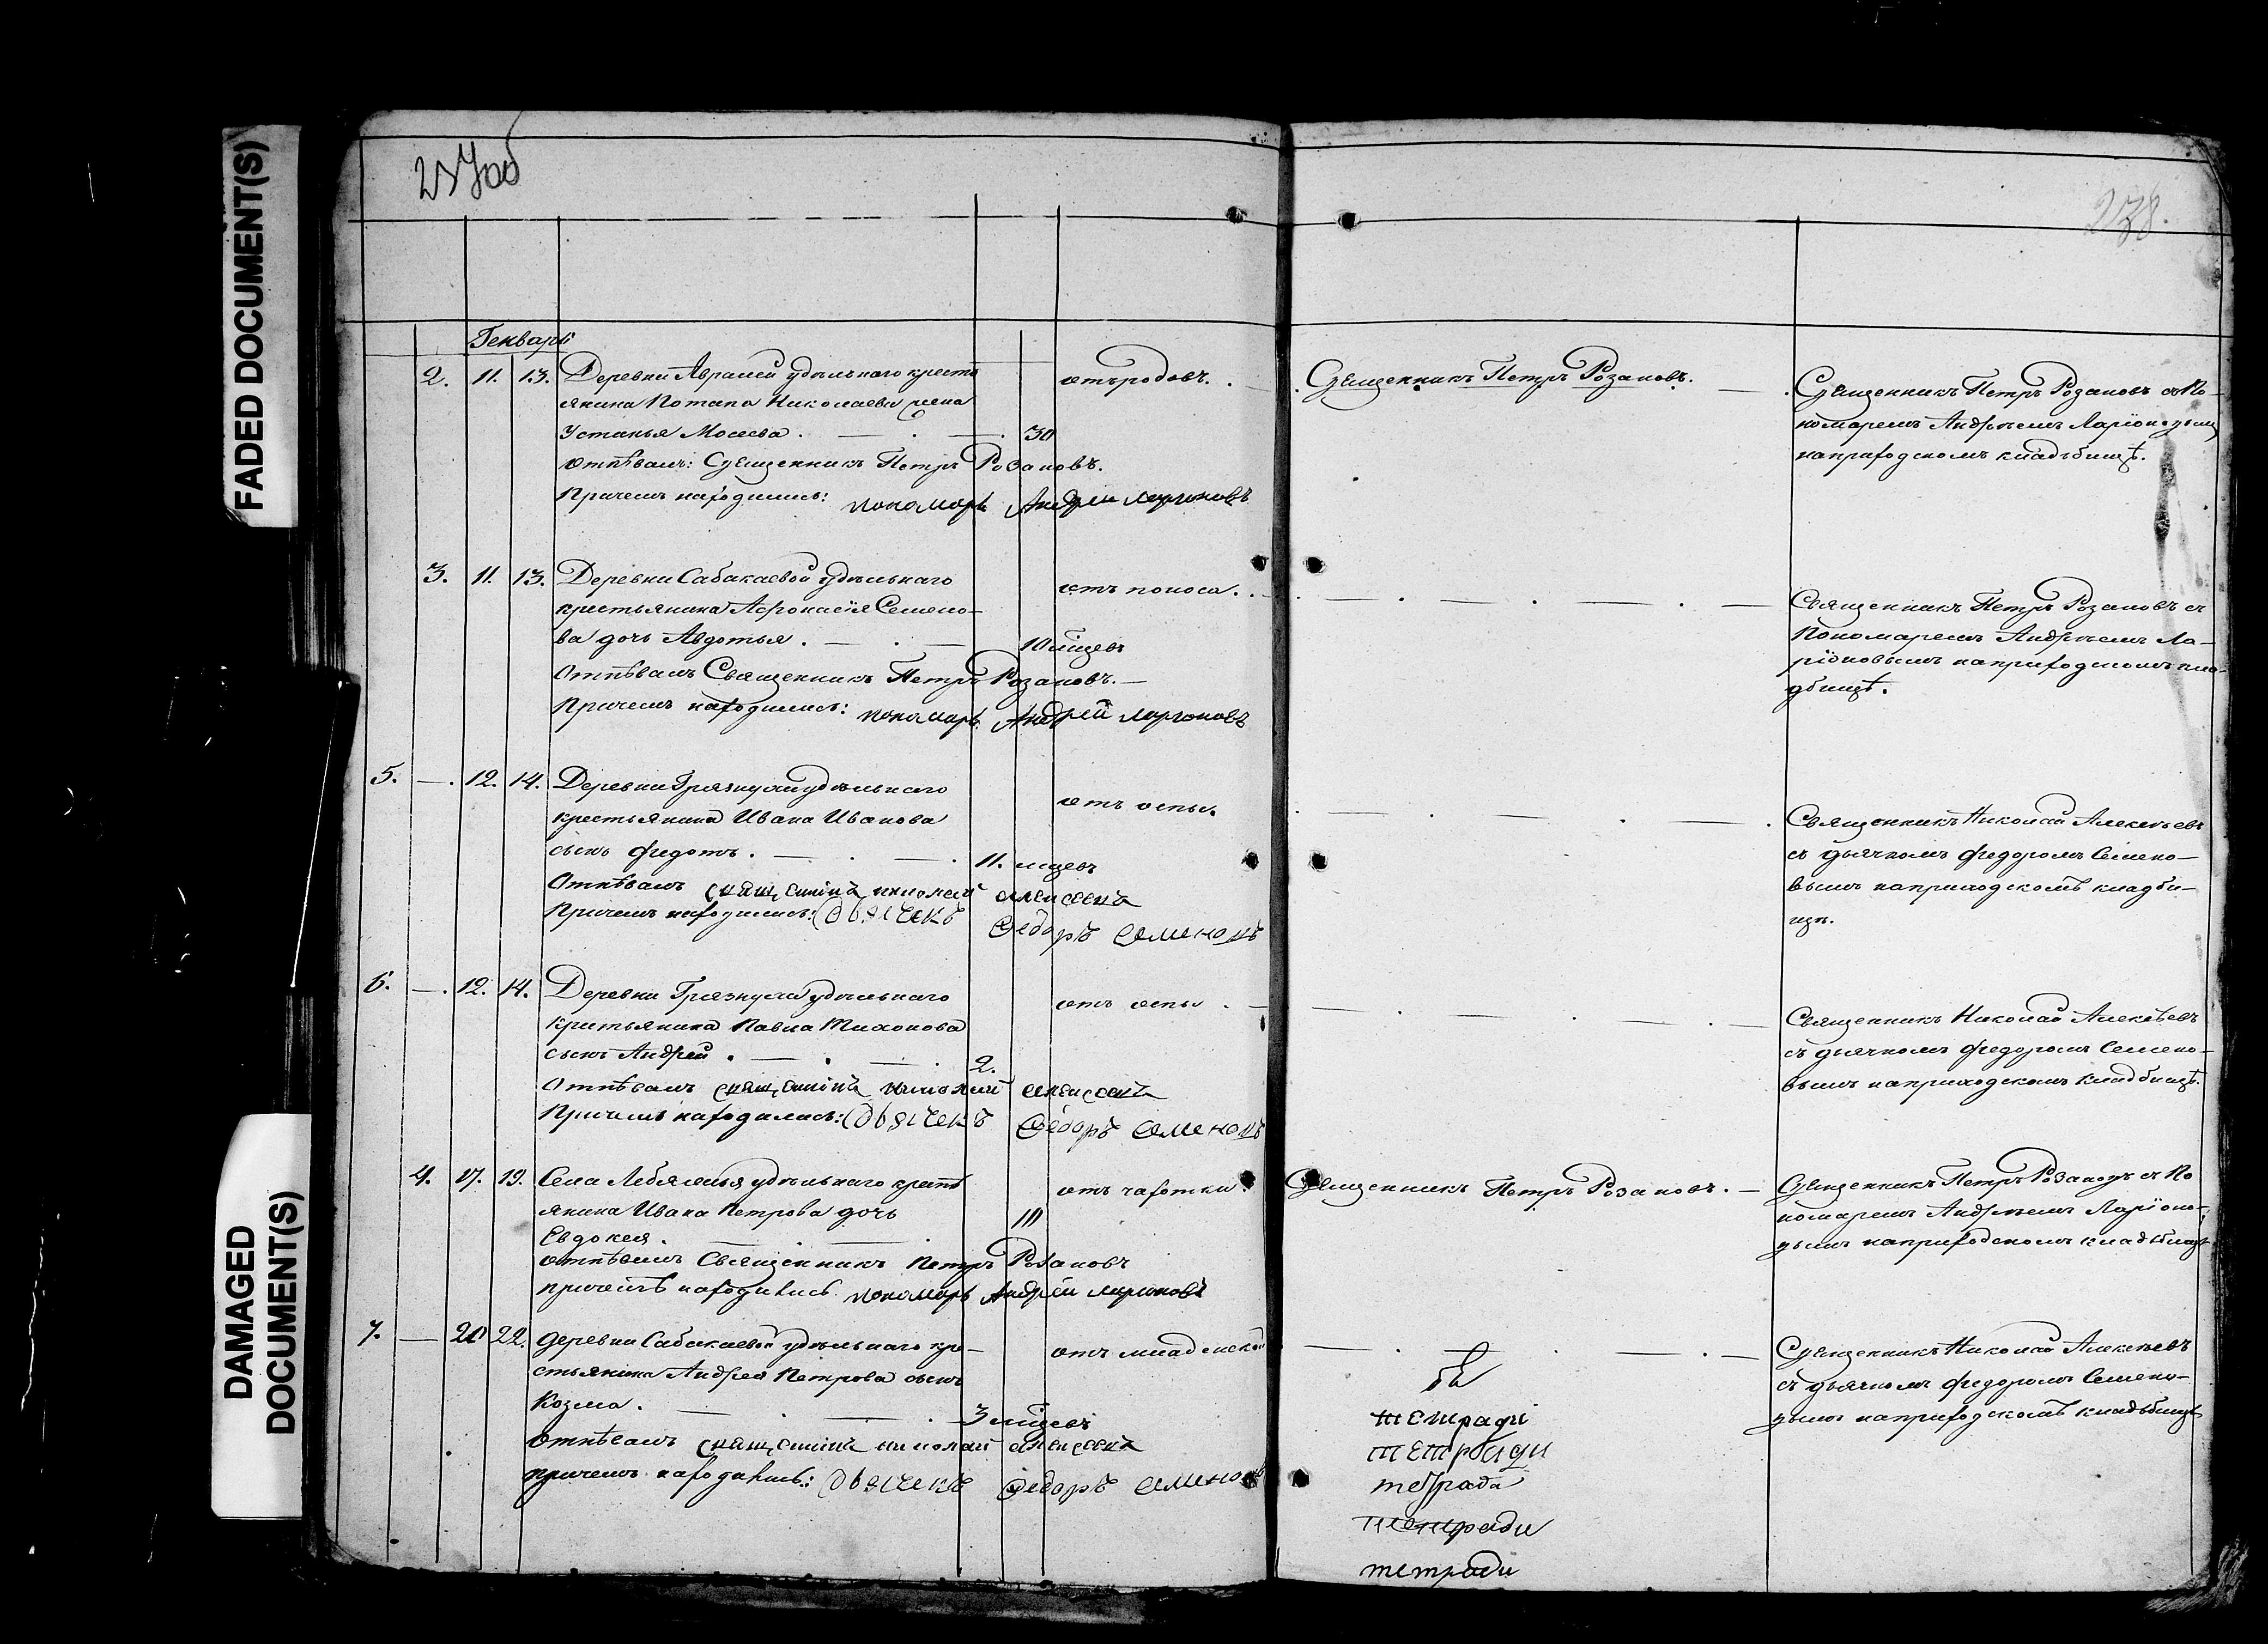 FADED DOCUMENT(S)
DAMAGED DOCUMENT(S)
238.
Генварь
2. 11. 13. Деревни Авралей удѣльнаго кресть
янина Потапа Николаева жена
Устинья Мосеева. 30
отъ родовъ.
Отпѣвалъ: Священникъ Петръ Розановъ.
Причемъ находились: пономарь Андрей Ларионовъ
Священникъ Петръ Розановъ.
Священникъ Петръ Розановъ съ По-
номаремъ Андреемъ Ларіоновымъ
на приходскомъ кладьбищѣ.
3. 11. 13. Деревни Сабакаевой удѣльнаго
крестьянина Афонасія Семено-
ва дочь Авдотья. 10 мцевъ
отъ поноса.
Отпѣвалъ Священникъ Петръ Розановъ.
Причемъ находились: пономарь Андрей Ларионовъ
Священникъ Петръ Розановъ съ
Пономаремъ Андреемъ Ла-
ріоновымъ на приходскомъ кла-
дбищѣ.
5. 12. 14. Деревни Грязнухи удѣльнаго
крестьянина Ивана Иванова
сынъ Федотъ. 11. мцевъ
отъ оспы.
Отпѣвалъ священникъ николай алексеевъ
Причемъ находились: Дьячекъ Федоръ Семеновъ
Священникъ Николай Алексѣевъ
съ дьячкомъ Федоромъ Семено-
вымъ на приходскомъ кладби-
щѣ.
6. 12. 14. Деревни Грязнухи удѣльнаго
крестьянина Павла Тихонова
сынъ Андрей. 2.
отъ оспы.
Отпѣвалъ священникъ николай алексеевъ
Причемъ находились: Дьячекъ Федоръ Семеновъ
Священникъ Николай Алексѣевъ
съ дьячкомъ Федоромъ Семено-
вымъ на приходскомъ кладбищѣ.
4. 17. 19. Села Лебяжья удѣльнаго кресть
янина Ивана Петрова дочь
Евдокея. 10
отъ чахотки.
отпѣвалъ Священникъ Петръ Розановъ
причемъ находились пономарь Андрей Ларионовъ
Священникъ Петръ Розановъ.
Священникъ Петръ Розановъ съ По
номаремъ Андреемъ Ларіоно-
вымъ на приходскомъ кладьбищѣ
7. 20 22. Деревни Сабакаевой удѣльнаго кре-
стьянина Андрея Петрова сынъ
Козма. 3 мцевъ
отъ младенской
отпѣвалъ священникъ николай алексеевъ
причемъ находились: Дьячекъ Федоръ Семеновъ
Священникъ Николай Алексѣевъ
съ дьячкомъ Федоромъ Семено-
вымъ на приходскомъ кладьбищѣ
тетради
тетради
тетрада
тетради
тетради